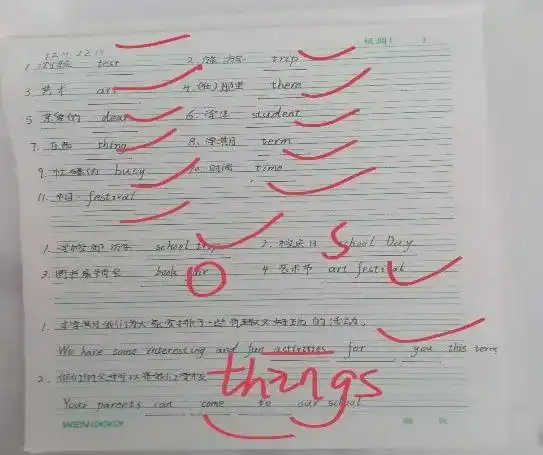 12月12日 星期( )
1. 测验 test 2. 旅行 trip
3. 艺术 art 4. (在)那里 there
5. 亲爱的 dear 6. 学生 student
7. 东西 thing 8. 学期 term
9. 忙碌的 busy 10. 时间 time
11. 节日 festival
1. 学校 school trip 2. school Day S
3. 图书 book 4. 艺术节 art festival
1. 本学期我们为大家安排了一些有趣又好玩的活动。
We have some interesting and fun activities for you this term
things
2. 你们的父母可以来我们学校
Your parents can come to our school